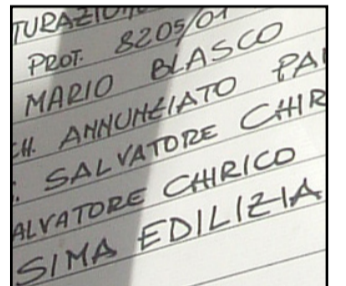 TURAZIONE
PROT. 8205/01
MARIO BLASCO
CH. ANNUNZIATO PA
. SALVATORE CHIR
ALVATORE CHIRICO
SIMA EDILIZIA